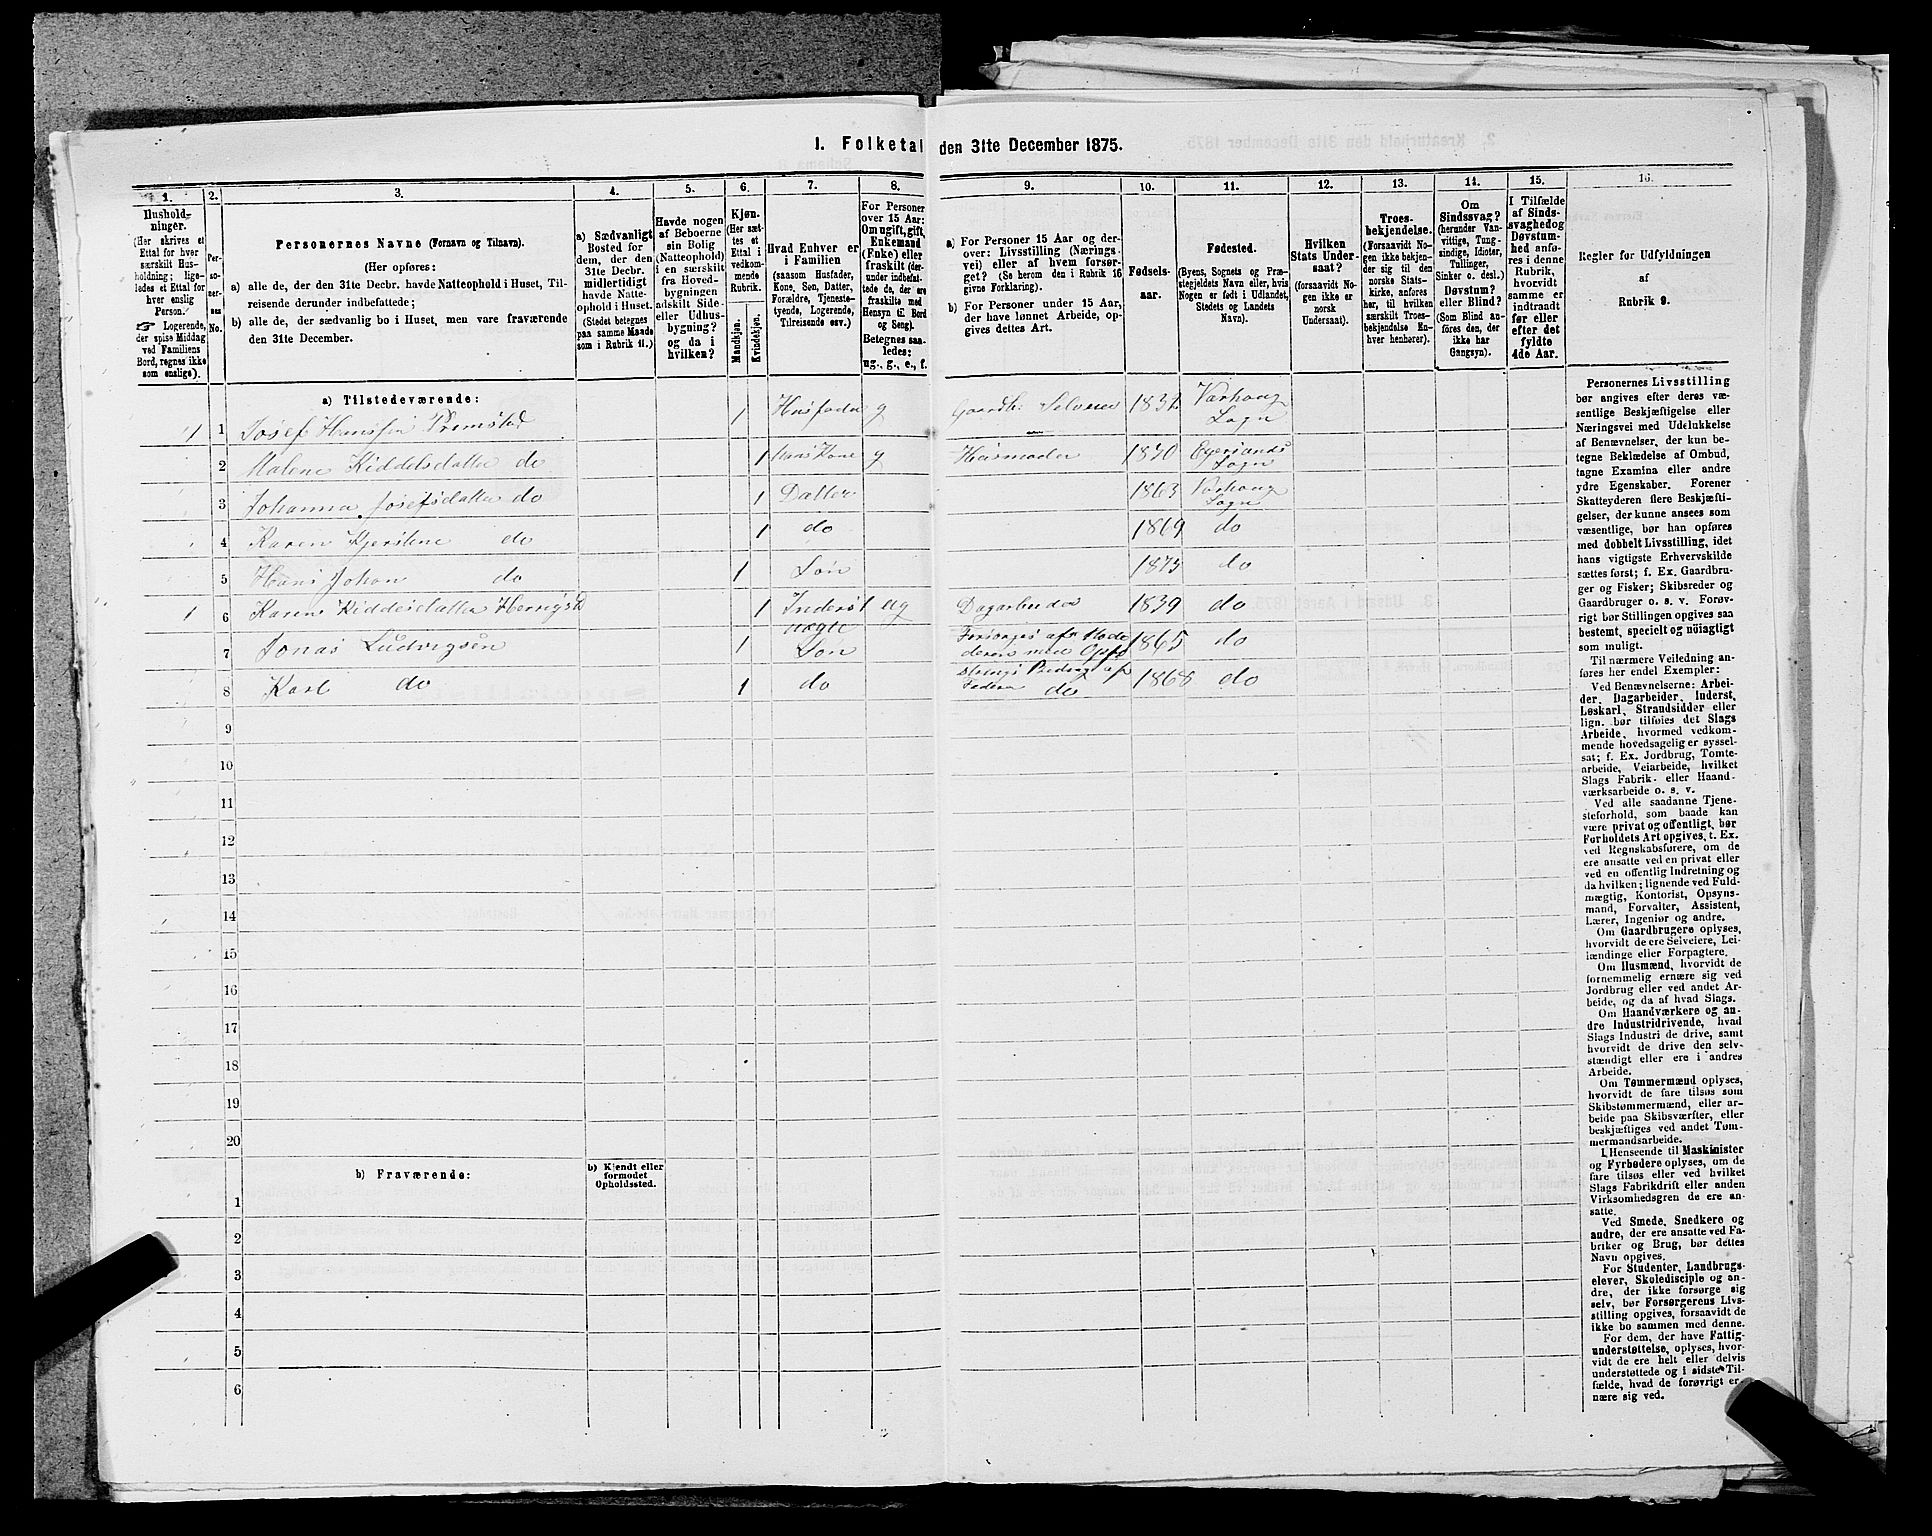 1. Folketal den 31te December 1875.
1.
2.
3.
4.
5.
6.
7.
8.
9.
10.
11.
12.
13.
14.
15.
16.
Hushold-
ninger.
(Her skrives et
Ettal for hver
særskilt Hus-
holdning; lige-
ledes et Ettal for
hver enslig
Person.
☞ Logerende,
der spise Middag
ved Familiens
Bord, regnes ikke
som enslige).
Per-
so-
ner-
nes
No.
Personernes Navne (Fornavn og Tilnavn).
(Her opføres:
a) alle de, der den 31te Decbr. havde Natteophold i Huset, Til-
reisende derunder indbefattede;
b) alle de, der sædvanlig bo i Huset, men vare fraværende
den 31te December.
a) Sædvanligt
Bosted for
dem, der den
31te Decbr.
midlertidigt
havde Natte-
ophold i Huset.
(Stedet betegnes
paa samme Maade
som i Rubrik 11.)
Havde nogen
af Beboerne
sin Bolig
(Natteophold)
i en særskilt
fra Hoved-
bygningen
adskilt Side-
eller Udhus-
bygning?
og da i
hvilken?
Kjøn.
(Her sæt-
tes et
Ettal i
vedkom-
mende
Rubrik.
Mandkjøn.
Kvindekjøn.
Hvad Enhver er
i Familien
(saasom Husfader,
Kone, Søn, Datter,
Forældre, Tjeneste-
tyende, Logerende,
Tilreisende osv.)
For Personer
over 15 Aar:
Om ugift, gift,
Enkemand
(Enke) eller
fraskilt (der-
under indbefat-
tede de, der ere
fraskilte med
Hensyn til Bord
og Seng).
Betegnes saa-
ledes:
ug., g., e., f.
a) For Personer 15 Aar og der-
over: Livsstilling (Nærings-
vei) eller af hvem forsør-
get? (Se herom den i Rubrik 16
givne Forklaring).
b) For Personer under 15 Aar,
der have lønnet Arbeide, op-
gives dettes Art.
Fødsels-
aar.
Fødested.
(Byens, Sognets og Præ-
stegjeldets Navn eller, hvis
Nogen er født i Udlandet,
Stedets og Landets
Navn).
Hvilken
Stats Under-
saat?
(forsaavidt No-
gen ikke er
norsk
Undersaat).
Troes-
bekjendelse.
(Forsaavidt No-
gen ikke bekjen-
der sig til den
norske Stats-
kirke, anføres
her, til hvilken
særskilt Troes-
bekjendelse En-
hver henhører).
Om
Sindssvag?
(herunder Van-
vittige, Tung-
sindige, Idioter,
Tullinger,
Sinker o. desl.)
Døvstum?
eller Blind?
(Som Blind an-
føres den, der
ikke har
Gangsyn).
I Tilfælde
af Sinds-
svaghed og
Døvstum-
hed anfø-
res i denne
Rubrik,
hvorvidt
samme er
indtraadt
før eller
efter det
fyldte
4de Aar.
Regler for Udfyldningen
af
Rubrik 9.
a) Tilstedeværende:
1 1 Josef Hanssen 1 Husfader g Selveier Varhoug Sogn
2 Malene do 1 Kone g Husmoder 1830 Sogn
3 Johanna Josefsdatter do 1 Datter 1863 Varhoug Sogn
4 Karen Kjerstine do 1 do 1869 do
5 Hans Johan do 1 Søn 1875 do
1 6 Karen 1 ug 1839 do
7 Jonas Ludvigsen 1 Søn 1865 do
8 Karl do 1 do do 1868 do
9
10
11
12
13
14
15
16
17
18
19
20
b) Fraværende:
b) Kjendt eller
formodet
Opholdssted.
1
2
3
4
5
6
Personernes Livsstilling
bør angives efter deres væ-
sentlige Beskjæftigelse eller
Næringsvei med Udelukkelse
af Benævnelser, der kun be-
tegne Beklædelse af Ombud,
tagne Examina eller andre
ydre Egenskaber. Forener
Skatteyderen flere Beskjæfti-
gelser, der kunne ansees som
væsentlige, bør han opføres
med dobbelt Livsstilling, idet
hans vigtigste Erhvervskilde
sættes først; f. Ex. Gaardbru-
ger og Fisker; Skibsreder og
Gaardbruger o. s. v. Forøv-
rigt bør Stillingen opgives saa
bestemt, specielt og nöiagtigt
som muligt.
Til nærmere Veiledning an-
føres her endel Exempler:
Ved Benævnelserne: Arbei-
der, Dagarbeider, Inderst,
Løskarl, Strandsidder eller
lign. bør tilføies det Slags
Arbeide, hvormed vedkom-
mende hovedsagelig er syssel-
sat; f. Ex. Jordbrug, Tomte-
arbeide, Veiarbeide, hvilket
Slags Fabrik- eller Haand-
værksarbeide o. s. v.
Ved alle saadanne Tjene-
steforhold, som baade kan
være privat og offentligt, bør
Forholdets Art opgives, t. Ex.
ved Regnskabsførere, om de
ere ansatte ved en privat eller
ved en offentlig Indretning og
da hvilken; lignende ved Fuld-
mægtig, Kontorist, Opsyns-
mand, Forvalter, Assistent,
Lærer, Ingeniør og andre.
Om Gaardbrugere oplyses,
hvorvidt de ere Selveiere, Lei-
lændinge eller Forpagtere.
Om Husmænd, hvorvidt de
fornemmelig ernære sig ved
Jordbrug eller ved andet Ar-
beide, og da af hvad Slags.
Om Haandværkere og an-
dre Industridrivende, hvad
Slags Industri de drive, samt
hvorvidt de drive den selv-
stændigt eller ere i andres
Arbeide.
Om Tømmermænd oplyses,
hvorvidt de fare tilsøs som
Skibstømmermænd, eller ar-
beide paa Skibsværfter, eller
beskjæftiges ved andet Tøm-
mermandsarbeide.
I Henseende til Maskinister
og Fyrbødere oplyses, om de
fare tilsøs eller ved hvilket
Slags Fabrikdrift eller anden
Virksomhedsgren de ere an-
satte.
Ved Smede, Snedkere og
andre, der ere ansatte ved Fa-
briker og Brug, bør dettes
Navn opgives.
For Studenter, Landbrugs-
elever, Skoledisciple og an-
dre, der ikke forsørge sig
selv, bør Forsørgerens Livs-
stilling opgives, forsaavidt de
ikke bo sammen med denne.
For dem, der have Fattig-
understøttelse, oplyses, hvor-
vidt de ere helt eller delvis
understøttede og i sidste Til-
fælde, hvad de forøvrigt er-
nære sig ved.